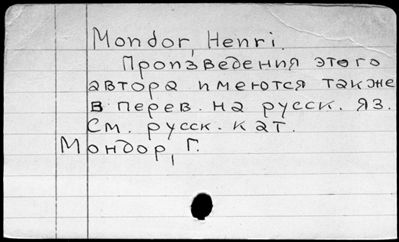 Mondor, Henri.
Произведения этого
автора имеются также
в перев. на русск. яз.
См. русск. кат.
Мондор, Г.